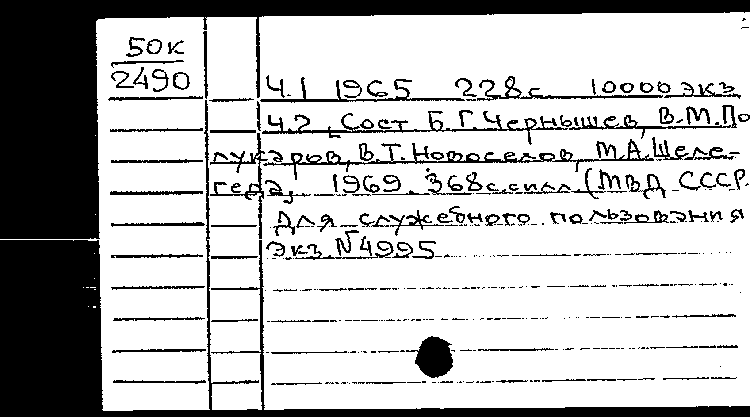 50К
2490
Ч.1 1965 228с. 10000экз
Ч.2, Сост Б.Г.Чернышев, В.М.По
лукаров, В.Т.Новоселов, М.А.Шеле-
геда, 1969. 368с.силл.(МВД СССР.
Для служебного пользования
Экз.№4995.